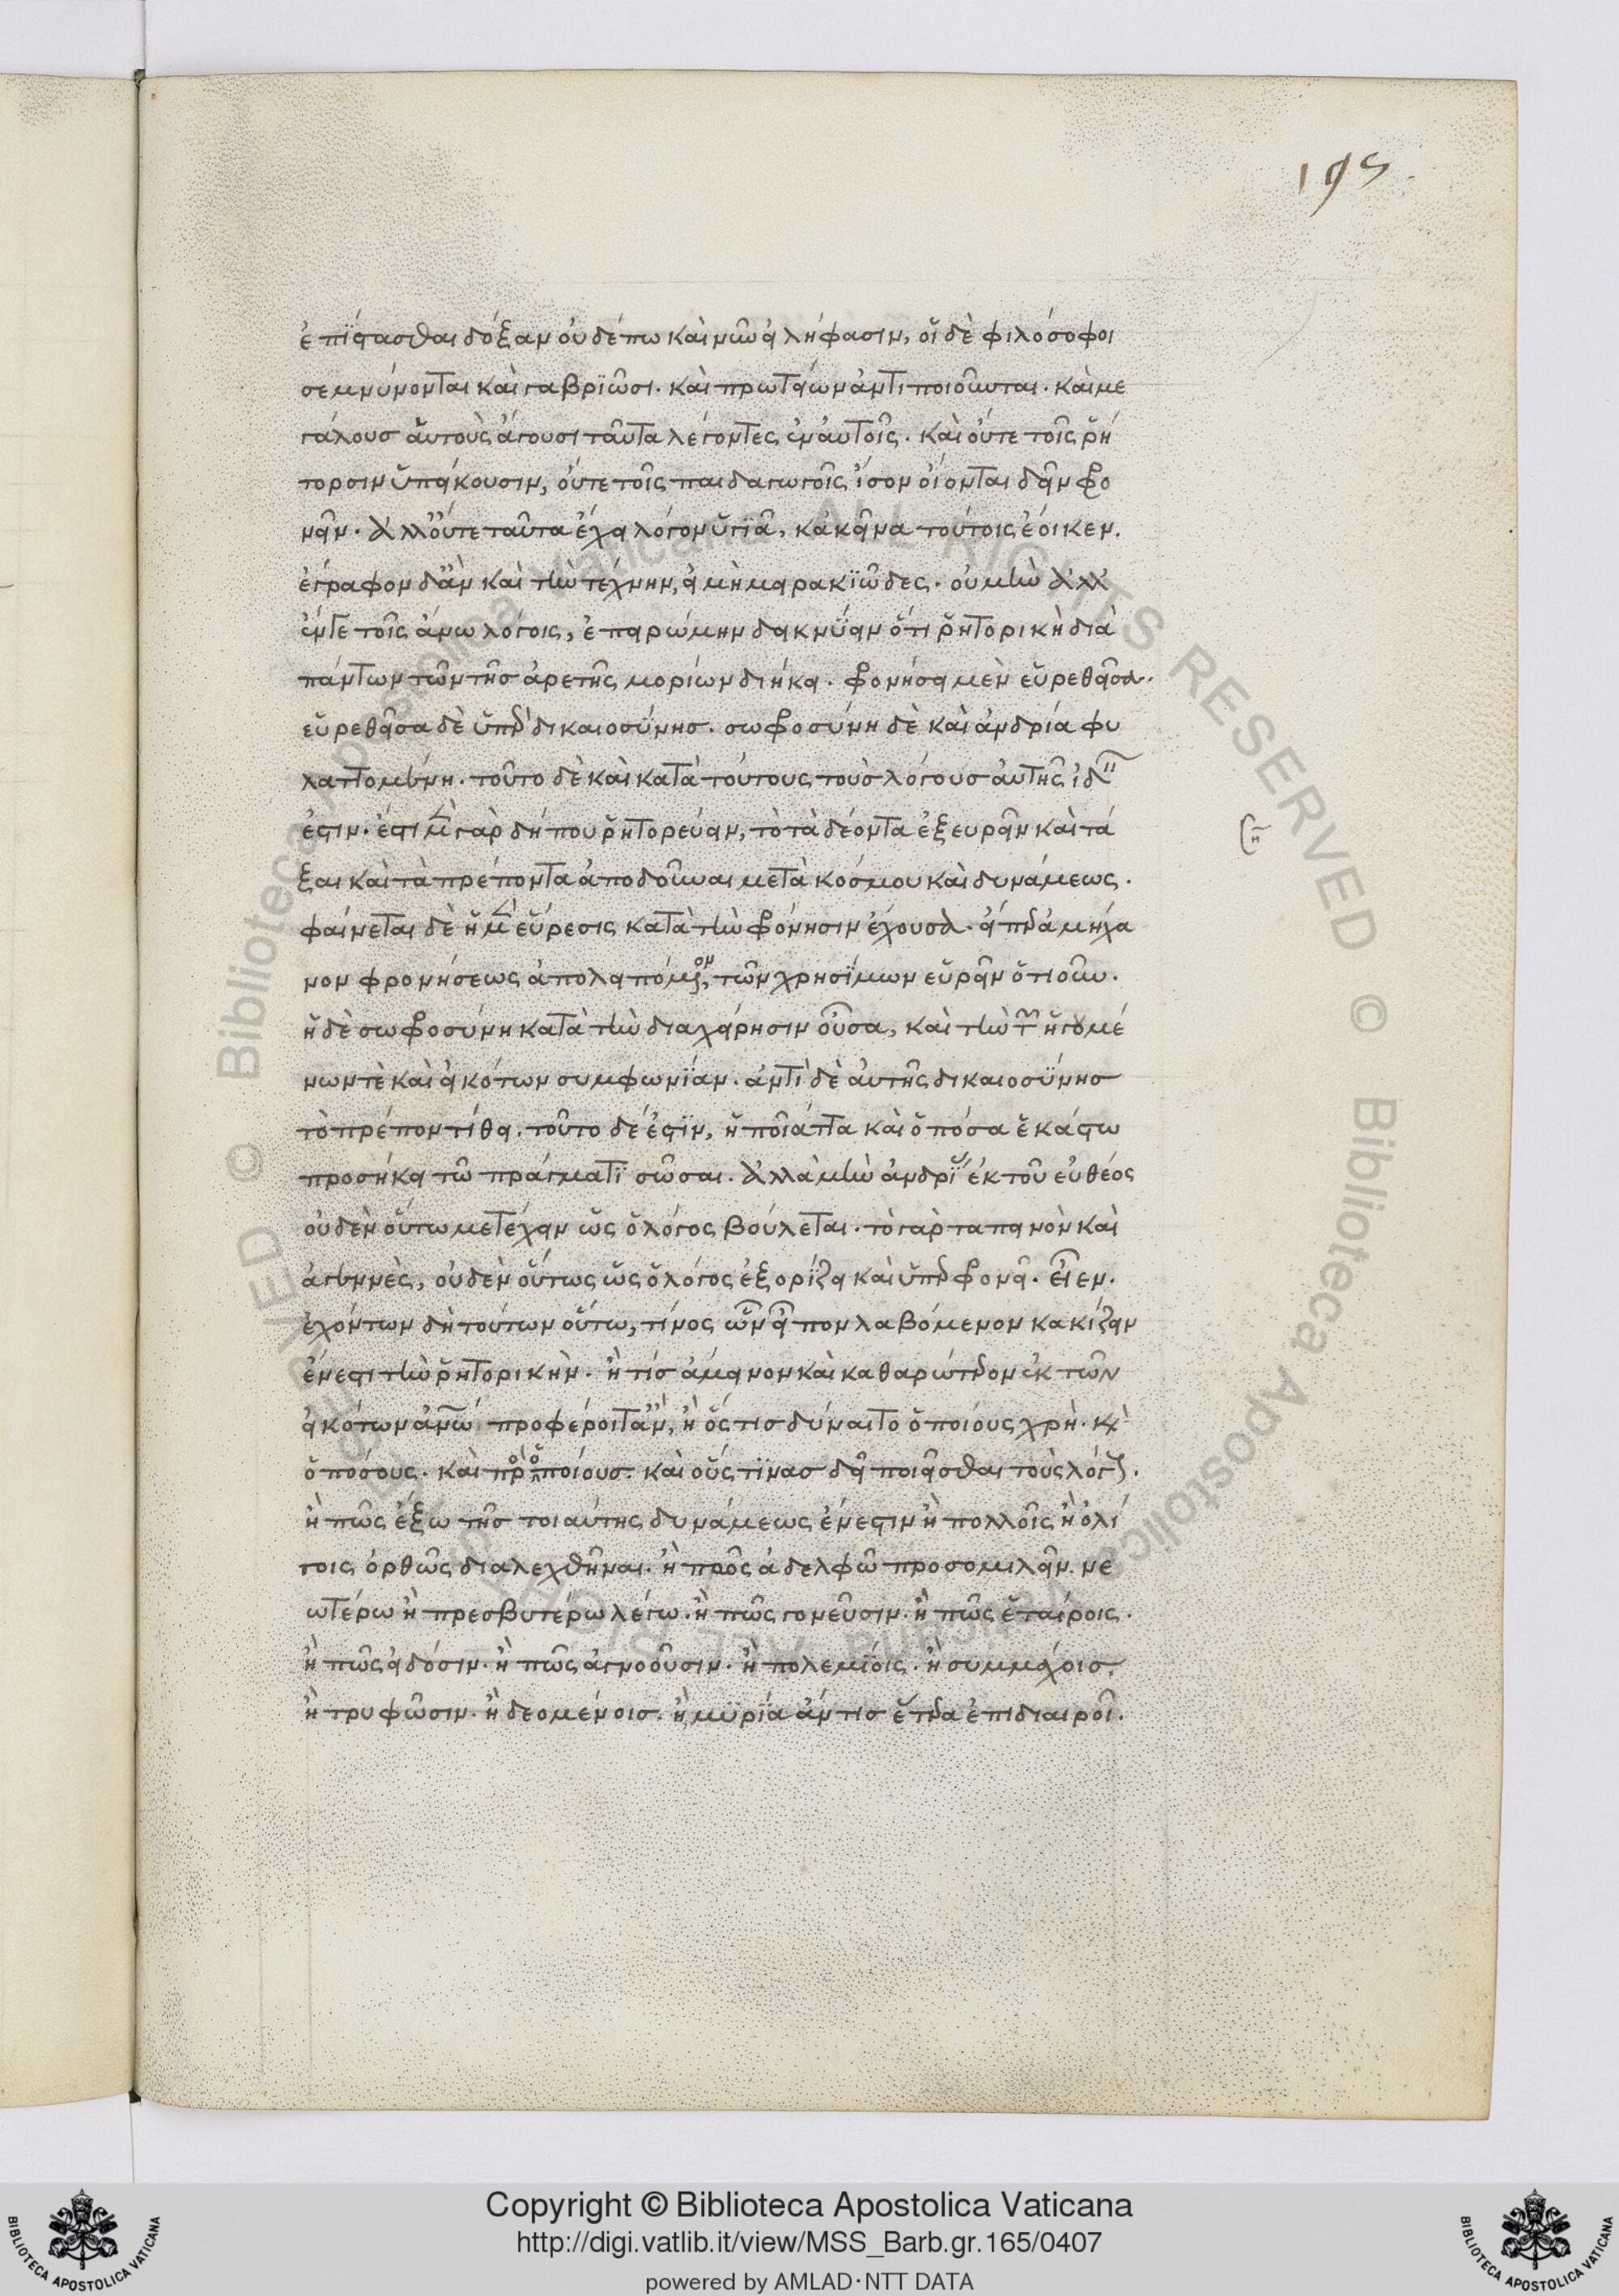 195
ἐπίστασθαι δόξαν οὐδέπω καὶ νῦν εἰλήφασιν, οἱ δὲ φιλόσοφοι
σεμνύνονται καὶ γαβριῶσι. καὶ πρωτείων ἀντιποιοῦνται. καὶ με
γάλους αὑτοὺς ἄγουσι ταῦτα λέγοντες ἐν αὐτοῖς. καὶ οὔτε τοῖς ῥή
τορσιν ὑπείκουσιν, οὔτε τοῖς παιδαγωγοῖς ἴσον οἴονται δεῖν φρο
νεῖν. ἀλλ' οὔτε ταῦτα ἔχει λόγον ὑγιᾶ, κἀκεῖνα τούτοις ἔοικεν.
ἔγραφον δ' ἂν καὶ τὴν τέχνην, εἰ μὴ μειρακιῶδες. οὐ μὴν ἀλλ'
ἔν γε τοῖς ἄνω λόγοις, ἐπειρώμην δεικνύειν ὅτι ῥητορικὴ διὰ
πάντων τῶν τῆς ἀρετῆς μορίων διήκει. φρονήσει μὲν εὑρεθεῖσα.
εὑρεθεῖσα δὲ ὑπὲρ δικαιοσύνης. σωφροσύνη δὲ καὶ ἀνδρία φυ
λαττομένη. τοῦτο δὲ καὶ κατὰ τούτους τοὺς λόγους αὐτῆς ἰδεῖν
ἔστιν. ἔστι μὲν γὰρ δήπου ῥητορεύειν, τὸ τὰ δέοντα ἐξευρεῖν καὶ τά
ξαι καὶ τὰ πρέποντα ἀποδοῦναι μετὰ κόσμου καὶ δυνάμεως.
φαίνεται δὲ ἡ μὲν εὕρεσις κατὰ τὴν φρόνησιν ἔχουσα. εἴπερ ἀμήχα
νον φρονήσεως ἀπολειπόμενον, τῶν χρησίμων εὑρεῖν ὁτιοῦν.
ἡ δὲ σωφροσύνη κατὰ τὴν διαχείρησιν οὖσα, καὶ τὴν τῶν ἡγουμέ
νων τὲ καὶ εἰκότων συμφωνίαν. ἀντὶ δὲ αὐτῆς δικαιοσύνης
τὸ πρέπον τίθει. τοῦτο δέ ἐστιν, ἢ ποῖ' ἄττα καὶ ὁπόσα ἑκάστω
προσήκει τῶ πράγματι σῶσαι. ἀλλὰ μὴν ἀνδρίας ἐκ τοῦ εὐθέος
οὐδὲν οὕτω μετέχειν ὡς ὁ λόγος βούλεται. τὸ γὰρ ταπεινὸν καὶ
ἀγεννὲς, οὐδὲν οὕτως ὡς ὁ λόγος ἐξορίζει καὶ ὑπερφρονεῖ. εἶεν.
ἐχόντων δὴ τούτων οὕτω, τίνος ὧν εἶπον λαβόμενον κακίζειν
ἔνεστι τὴν ῥητορικὴν. ἢ τίς ἄμεινον καὶ καθαρώτερον ἐκ τῶν
εἰκότων προφέροιτ' ἂν, ἢ ὅς τις δύναιτο ὁποίους χρὴ. καὶ
ὁπόσους. καὶ πρὸς ὁποίους. καὶ οὕς τινας δεῖ ποιεῖσθαι τοὺς λόγους.
ἢ πῶς ἔξω τῆς τοιαύτης δυνάμεως ἔνεστιν ἢ πολλοῖς ἢ ὀλί
γοις ὀρθῶς διαλεχθῆναι. ἢ πρὸς ἀδελφῶ προσομιλεῖν. νε
ωτέρω ἢ πρεσβυτέρω λέγω. ἢ πῶς γονεῦσιν. ἢ πῶς ἑταίροις.
ἢ πῶς εἰδόσιν. ἢ πῶς ἀγνοοῦσιν. ἢ πολεμίοις. ἢ συμμάχοις.
ἢ τρυφῶσιν. ἢ δεομένοις. ἢ μυρία ἄν τις ἕτερα ἐπιδιαιροῖ.
Copyright © Biblioteca Apostolica Vaticana
http://digi.vatlib.it/view/MSS_Barb.gr.165/0407
powered by AMLAD·NTT DATA
BIBLIOTECA APOSTOLICA VATICANA
BIBLIOTECA APOSTOLICA VATICANA